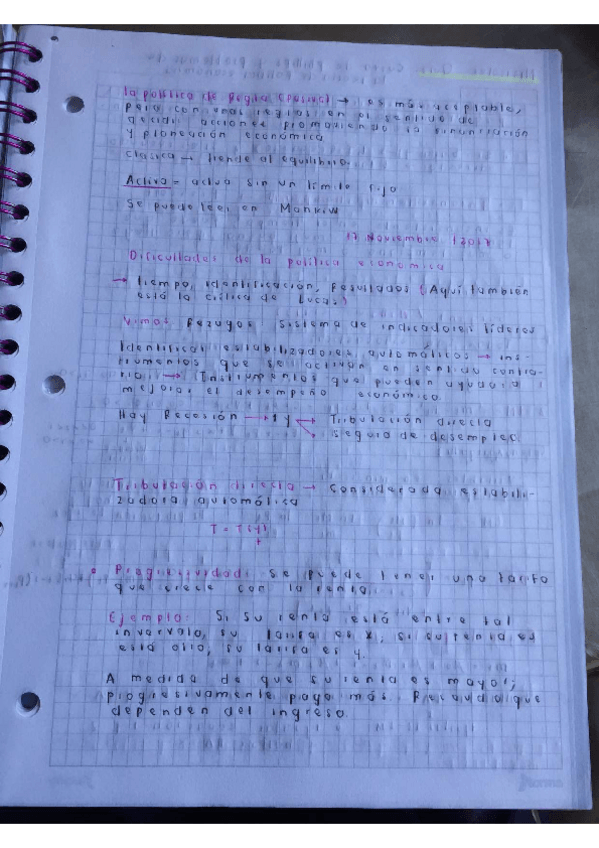 la política de regla (pasiva) → es más aceptable,
pero con unas reglas en el sentido de
decidir acciones promoviendo la
y planeación económica
Clásica → tiende al equilibrio.
Activa = actua sin un límite fijo
Se puede leer en Mankiw
17 Noviembre /2017
Dificultades de la política económica
→ tiempo, identificación, Resultados (Aquí también
está la crítica de Lucas)
Vimos: Rezagos, Sistema de indicadores líderes
Identificar estabilizadores automáticos → ins-
trumentos que se activan en sentido contra-
rio. → Instrumentos que pueden ayudar a
mejorar el desempeño económico.
Hay Recesión → ↓y Tributación directa
Seguro de desempleo.
Tributación directa → considerada estabili-
zadora automática
T = T(y)
+
• Progresividad: se puede tener una tarifa
que crece con la renta.
Ejemplo: Si su renta está entre tal
invarvalo, su tarifa es x, si su renta es
esta otro, su tarifa es y.
A medida de que su renta es mayor,
progresivamente paga más. Recauda que
dependen del ingreso.
norma